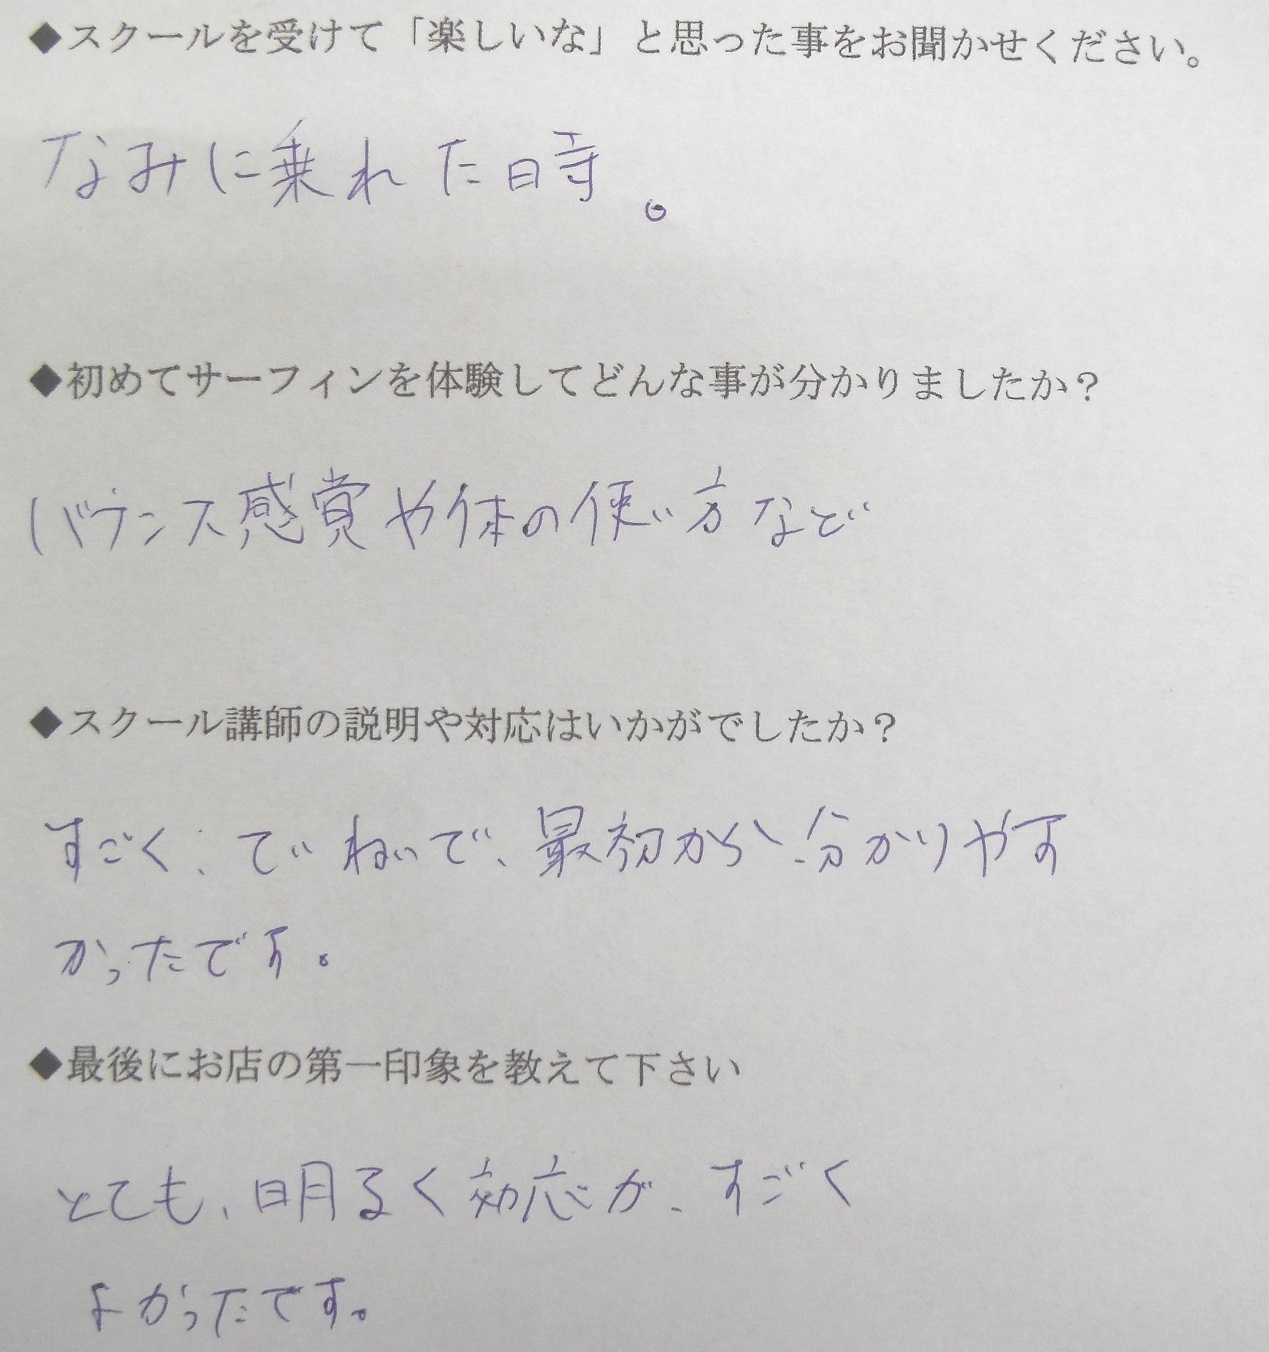 ◆スクールを受けて「楽しいな」と思った事をお聞かせください。
なみに乗れた時。
◆初めてサーフィンを体験してどんな事が分かりましたか？
バランス感覚や体の使い方など
◆スクール講師の説明や対応はいかがでしたか？
すごく、ていねいで、最初から、分かりやす
かったです。
◆最後にお店の第一印象を教えて下さい
とても、明るく効応が、すごく
よかったです。